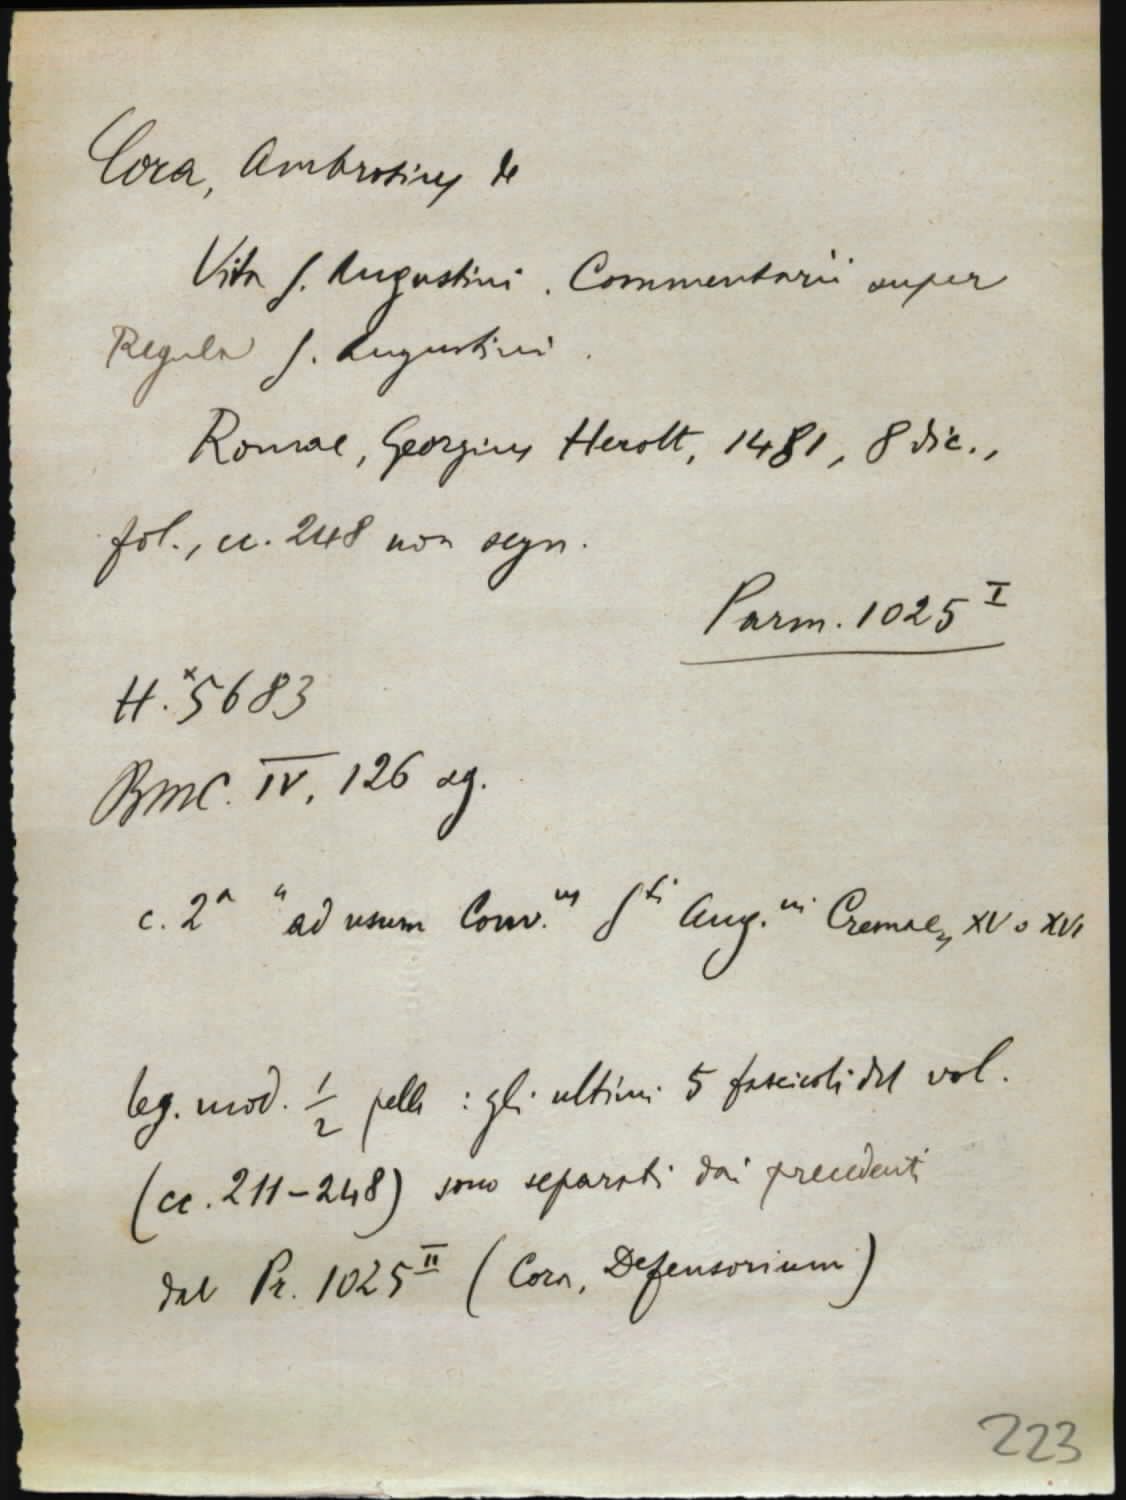 Cora, Ambrosius de
Vita S. Augustini. Commentarii super
Regula S. Augustini.
Romae, Georgius Herolt, 1481, 8 dic.,
fol., cc. 248 non segn.
Parm. 1025 I
H. *5683
BMC. IV, 126 sg.
c. 2a "ad usum Conv.us Sti Aug.ni Cremae, XV o XVI
leg. mod. 1/2 pelle : gli ultimi 5 fascicoli del vol.
(cc. 211-248) sono separati dai precedenti
dal Pr. 1025 II (Cora, Defensorium)
223